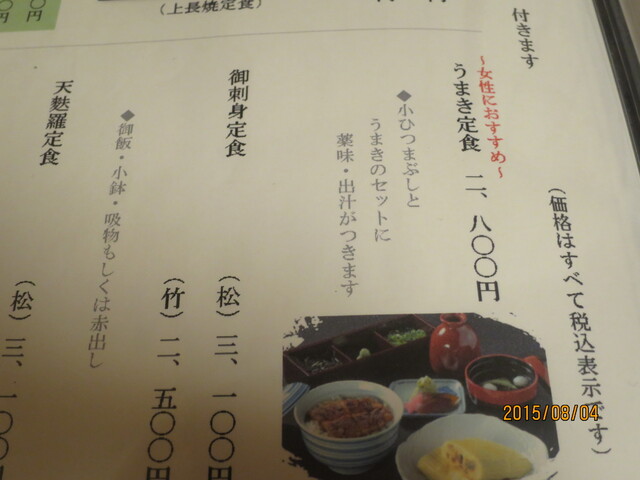 付きます
(価格はすべて税込表示です)
～女性におすすめ～
うまき定食 二、八〇〇円
◆小ひつまぶしと
うまきのセットに
薬味・出汁がつきます
御刺身定食
(松) 三、一〇〇円
(竹) 二、五〇〇円
◆御飯・小鉢・吸物もしくは赤出し
天麩羅定食
(松) 三、一〇〇
(上長焼定食)
〇円
〇円
円
円
2015/08/04